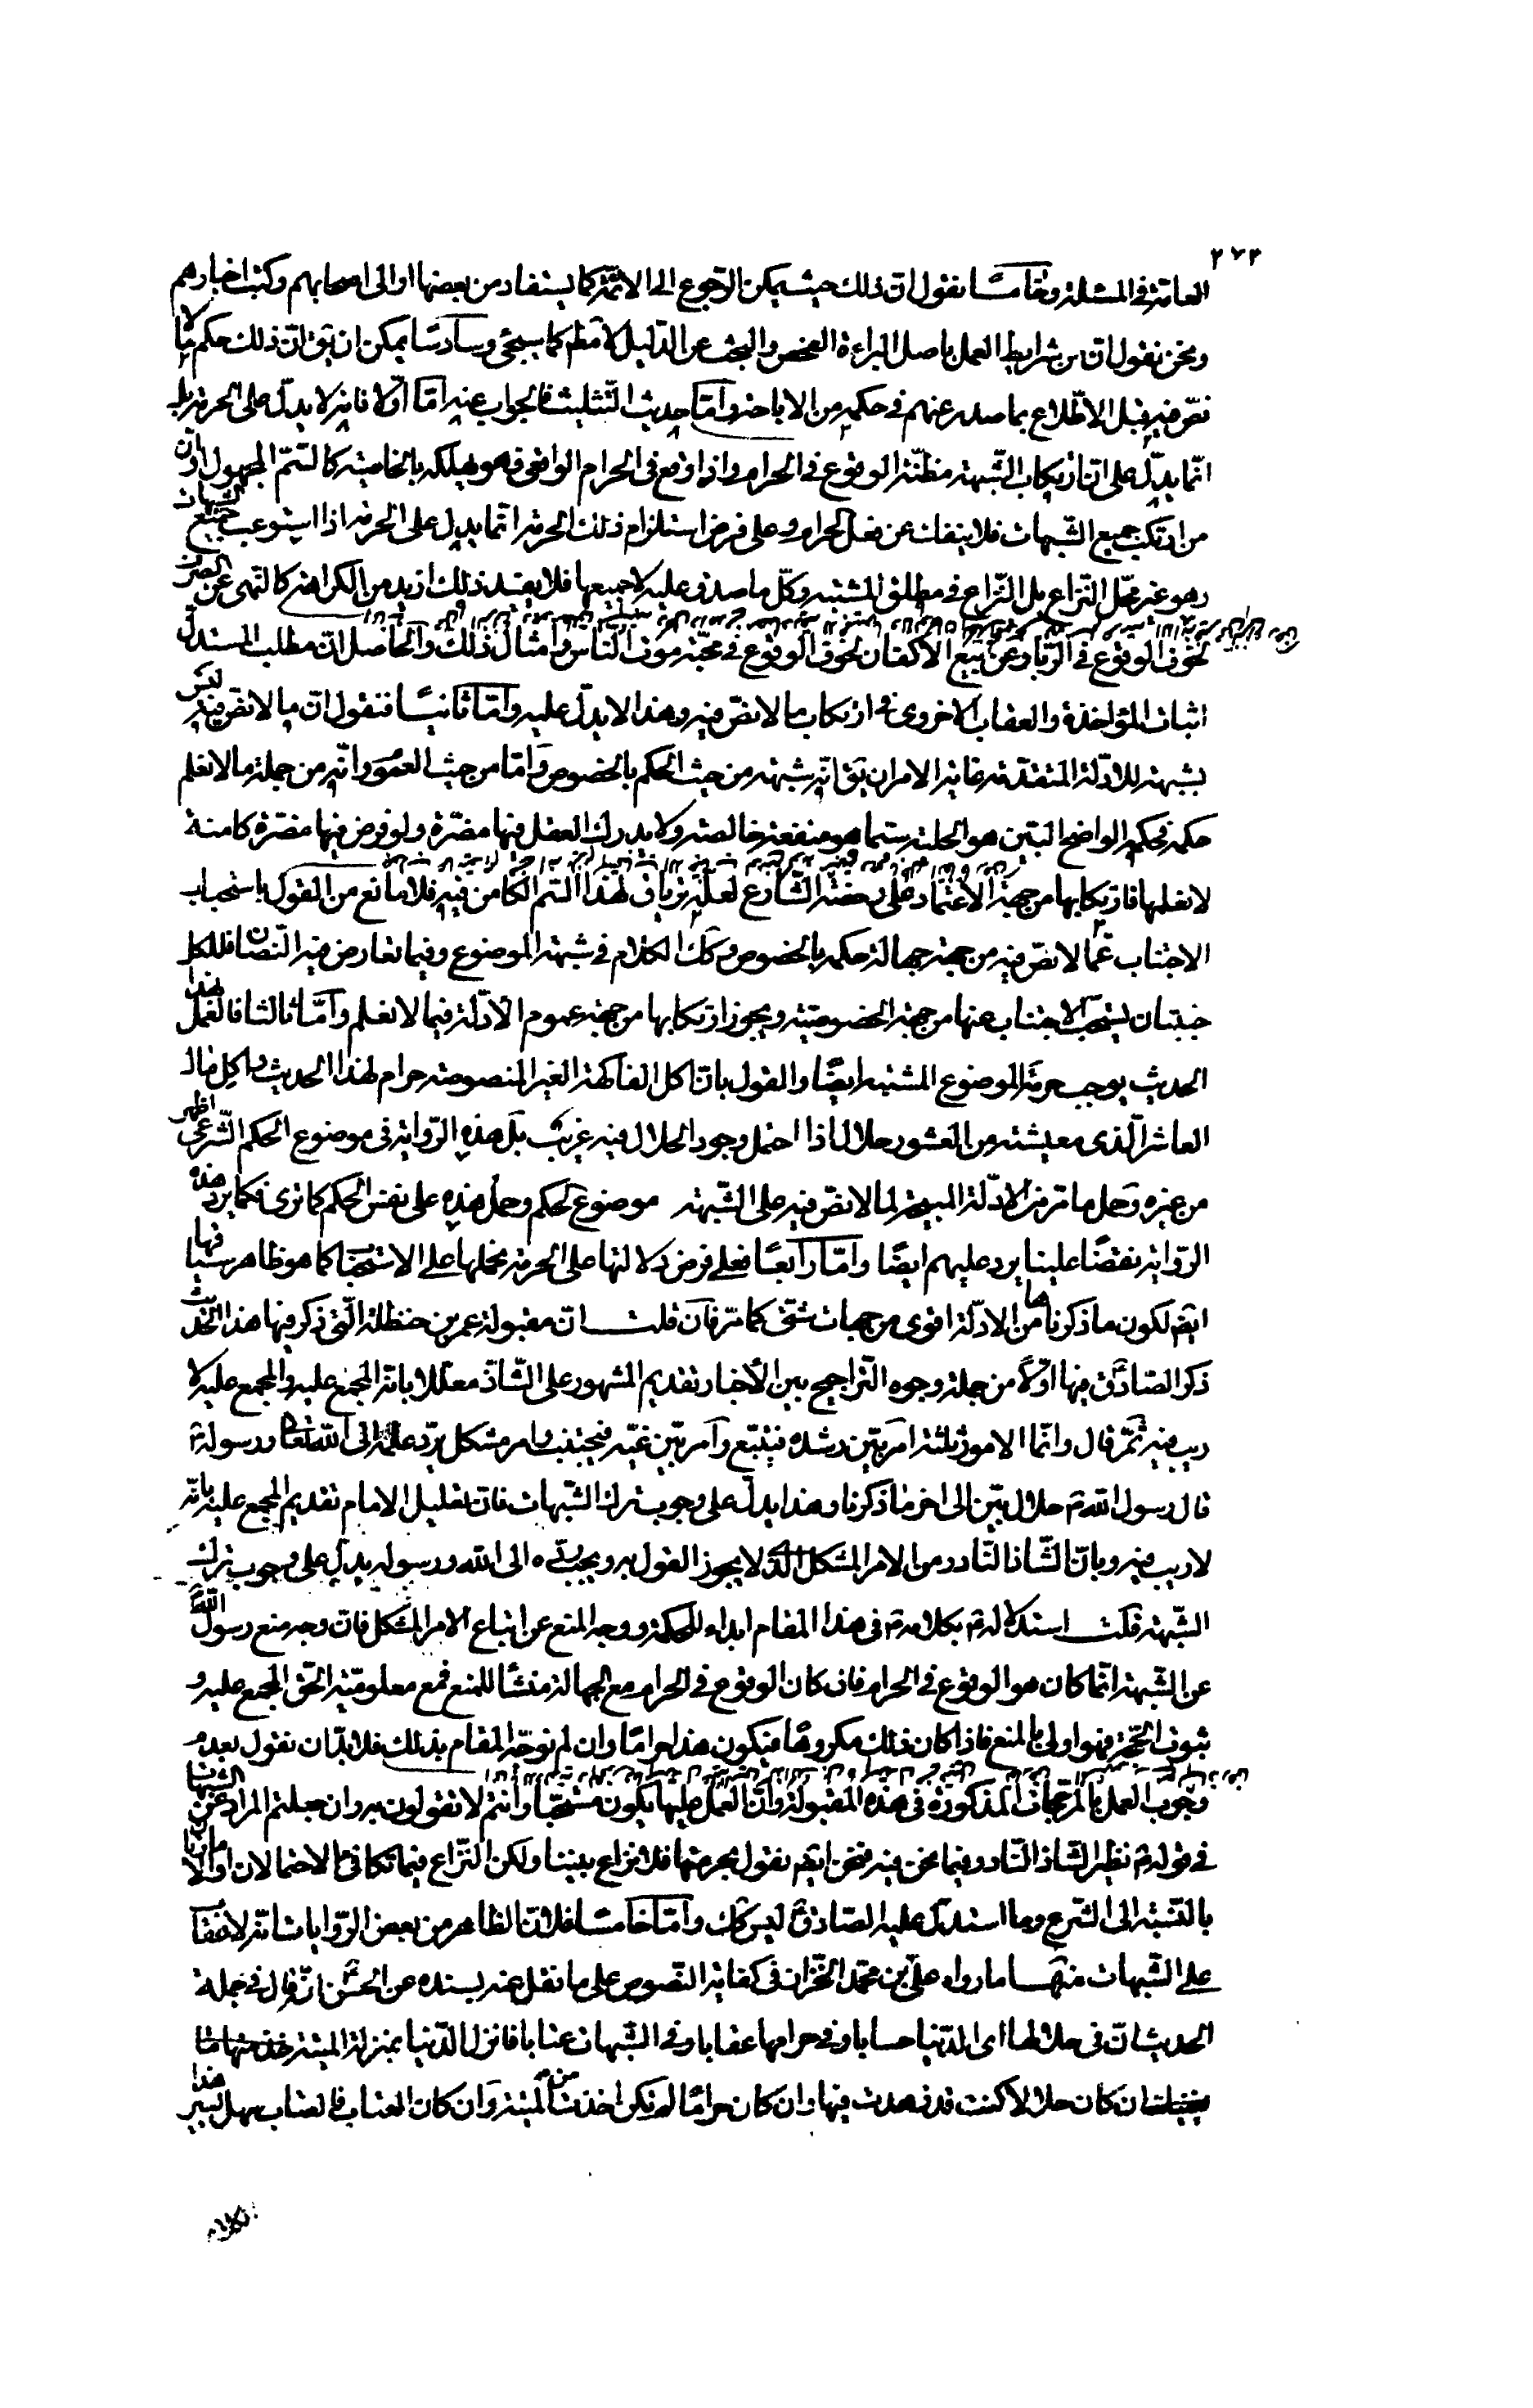 ٢٧٣
العامّة في المسئلة وخامسا نقول انّ ذلك حيث يمكن الرّجوع الى الائمّة كما يستفاد من بعضها او الى اصحابهم وكتب اخبارهم
ونحن نقول ان من شرايط العمل باصل البراءة الفحص والبحث عن الدّليل لا مطلقا كما سيجيئ وسادسا يمكن ان يق انّ ذلك حكم ما لا
نصّ فيه قبل الاطّلاع بما صدر عنهم في حكمه من الاباحة وامّا حديث التّثليث فالجواب عنه امّا اوّلا فانّه لا يدلّ على الحرمة بل
انّما يدلّ على انّ ارتكاب الشّبهة مظنّة الوقوع في الحرام واذا وقع في الحرام الواقعي فهو يهلكه بالخاصيّة كالسّمّ المجهول او انّ
من ارتكب جميع الشّبهات فلا ينفك عن فعل الحرام وعلى فرض استلزام ذلك الحرمة انّما يدل على الحرمة اذا استوعب جميع الشّبهات
وهو غير محلّ النّزاع بل النّزاع في مطلق المشتبه وكلّ ما صدق عليه لا جميعها فلا يفيد ذلك ازيد من الكراهة كالنّهى عن الصرف
لخوف الوقوع في الرّبا وعن بيع الاكفان لخوف الوقوع في محبّة موت النّاس وامثال ذلك والحاصل ان مطلب المستدلّ
اثبات المؤاخذة والعقاب الاخروى في ارتكاب ما لا نصّ فيه وهذا لا يدلّ عليه وامّا ثانيا فنقول انّ ما لا نصّ فيه ليس
بشبهة للادلّة المتقدّمة غاية الامر ان يق انّه شبهة من حيث الحكم بالخصوص وامّا من حيث العموم وانّه من جملة ما لا نعلم
حكمه فحكمه الواضح البيّن هو الحلية سيّما هو منفعة خالصة ولا يدرك العقل فيها مضرّة ولو فرض فيها مضرّة كامنة
لا نعلمها فارتكابها من جهة الاعتماد على رخصة الشّارع لعلّه ترياق لهذا السّم الكامن فيه فلا مانع من القول باستحباب
الاجتناب عمّا لا نصّ فيه من جهة جهالة حكمه بالخصوص وكك الكلام في شبهة الموضوع وفيما تعارض فيه النّصّان فللكل
جهتان يستحب الاجتناب عنها من جهة الخصوصيّة ويجوز ارتكابها من جهة عموم الادلّة فيما لا نعلم وامّا ثالثا فالعمل بهذا
الحديث يوجب حرمة الموضوع المشتبه ايضًا والقول بانّ اكل الفاكهة الغير المنصوصة حرام لهذا الحديث واكل مال
العاشر الّذى معيشته من العشور حلال اذا احتمل وجود الحلال فيه غريب بل هذه الرّواية في موضوع الحكم الشّرعى اظهر
من غيره وحمل ما مرّ من الادلّة المبيحة لما لا نصّ فيه على الشّبهة موضوع الحكم وحمل هذه على نفس الحكم كما ترى فكما يرد هذه
الرّواية نقضًا علينا يرد عليهم ايضًا وامّا رابعًا فعلى فرض دلالتها على الحرمة نحملها على الاستحباب كما هو ظاهر سياقها
ايضم لكون ما ذكرناها من الادلّة اقوى من جهات شتّى كما مرّ فان قلت انّ مقبولة عمر بن حنظلة الّتى ذكر فيها هذا الحديث
ذكر الصّادق فيها اوّلا من جملة وجوه التّراجيح بين الأخبار تقديم المشهور على الشّاذّ معلّلا بانّ المجمع عليه والمجمع عليه لا
ريب فيه ثمّ قال وانّما الامور ثلثة امر بيّن رشده فيتّبع وامر بيّن غيّه فيجتنب وامر مشكل يردّ علمه الى الله تعا ورسوله ص
قال رسول الله ص حلال بيّن الى اخر ما ذكرنا وهذا يدلّ على وجوب ترك الشّبهات فانّ تعليل الامام تقديم المجمع عليه بانّه
لا ريب فيه وبانّ الشّاذ النّادر من الامر المشكل الّذى لا يجوز القول به ويجب ردّه الى الله ورسوله يدلّ على وجوب ترك
الشّبهة قلت استدلاله بكلامه ص في هذا المقام ابداء للحكمة ووجه المنع عن اتباع الامر المشكل فانّ وجه منع رسول الله
عن الشّبهة انّما كان هو الوقوع في الحرام فاذا كان الوقوع في الحرام مع الجهالة منشأ للمنع فمع معلوميّة الحقّ المجمع عليه و
ثبوت الحجّة فهو اولى بالمنع فاذا كان ذلك مكروها فيكون هذا حراما وان لم نوجّه المقام بذلك فلا بدّ ان نقول بعدم
وجوب العمل بالمرجّحات المذكورة في هذه المقبولة وانّ العمل عليها يكون مستحبّا وانتم لا تقولون به وان جعلتم المراد عن الشّبهات
في قوله ص نظير الشّاذ النّادر وفيما نحن فيه فنحن ايضم نقول بحرمتها فلا نزاع بيننا ولكن النّزاع فيما تكافئ الاحتمالان
بالنّسبة الى الشّرع وما استدلّ عليه الصّادق ليس كك وامّا خامسا فلانّ الظاهر من بعض الرّوايات انّه لا عقاب
على الشّبهات منها ما رواه علىّ بن محمّد الخزّاز في كفاية النّصوص على ما نقل عنه بسنده عن الحسن انّه قال في جملة
الحديث انّ في حلالها اى الدّنيا حسابا وفي حرامها عقابا وفي الشّبهات عتابا فانزل الدّنيا بمنزلة الميتة خذ منها ما
يكفيك ان كان حلالا كنت قد زهدت فيها وان كان حراما لم تكن اخذت من الميتة وان كان العتاب فالعتاب سهل يسير هذا